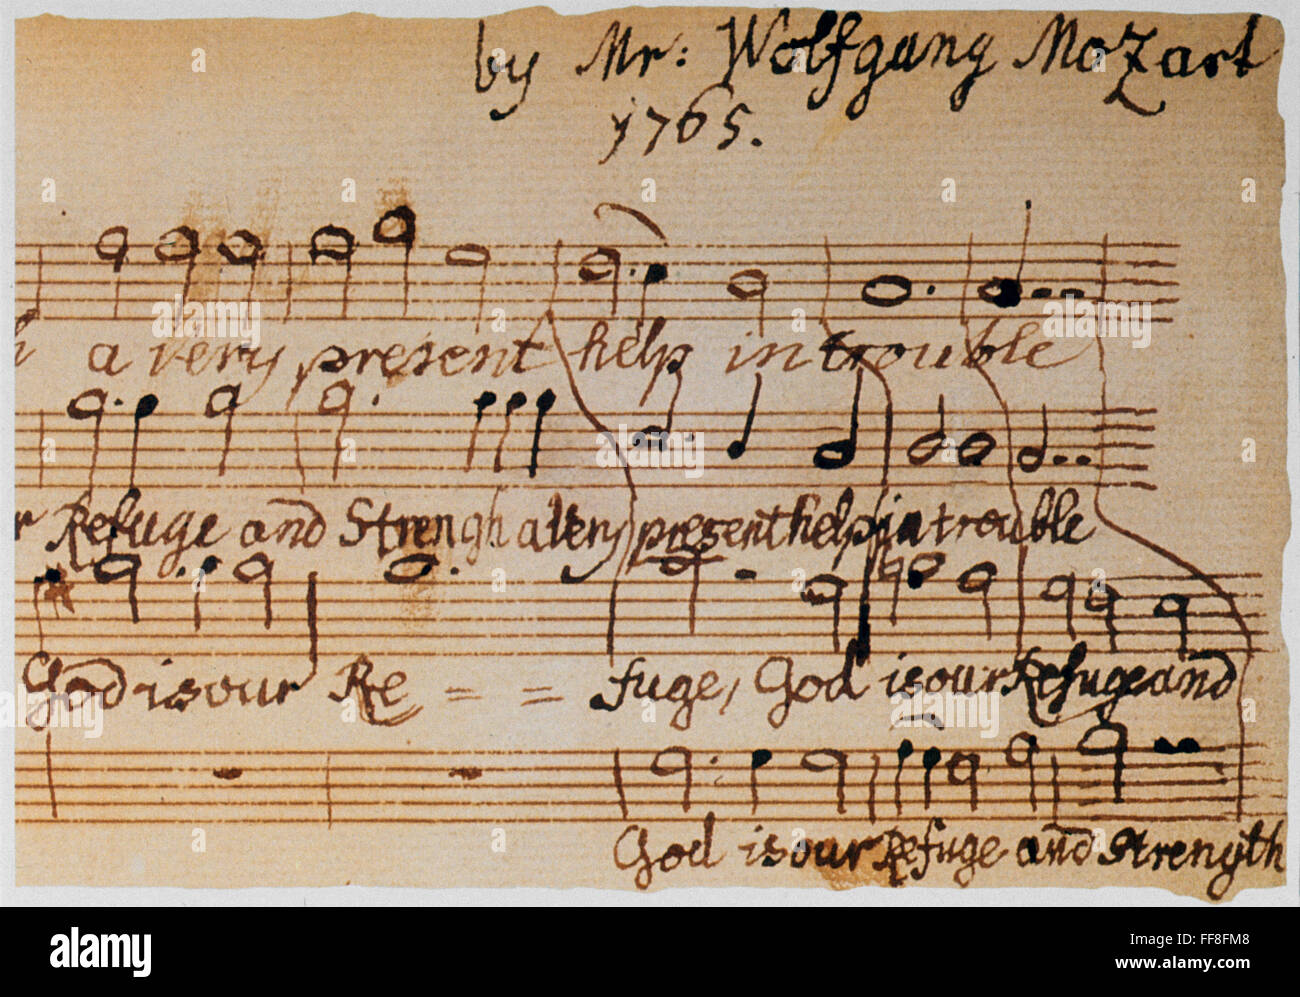 by Mr: Wolfgang Mozart
1765.
h a very present help in trouble
r Refuge and Strengh a Very present help in trouble
God is our Re = = fuge, God is our Refuge and
God is our Refuge and Strength
alamy
Image ID: FF8FM8
www.alamy.com